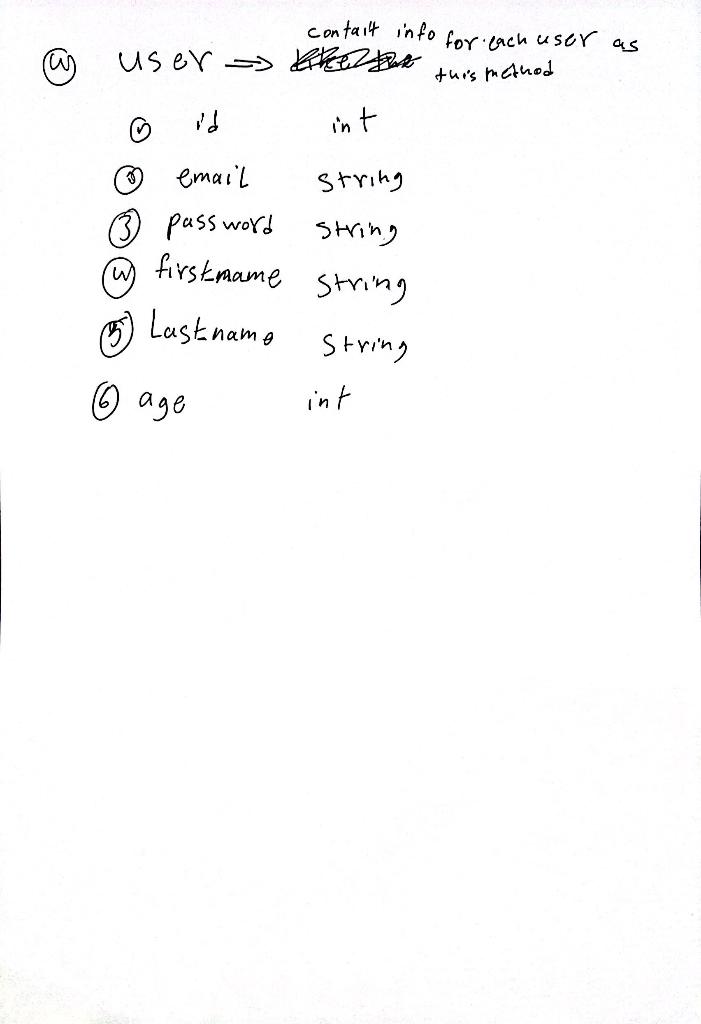 contait info for each user as
user ⇒ this method
id int
email string
3 password string
firstmame string
5 Lastname string
6 age int